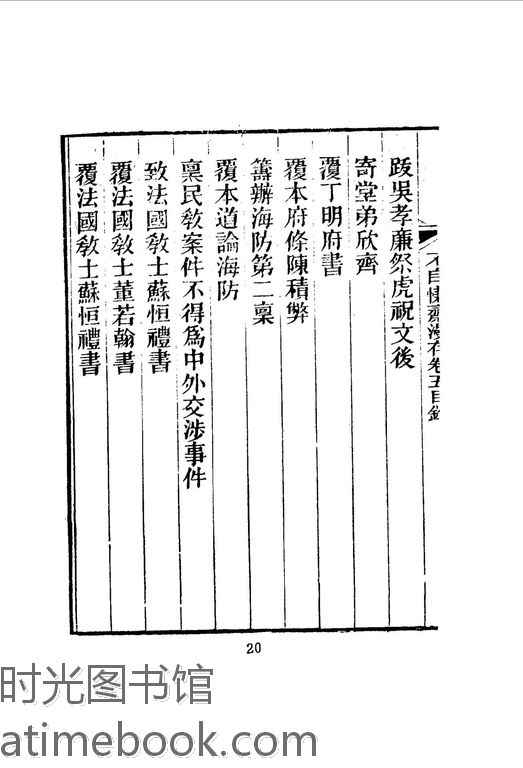 不自慊齋漫存卷五目錄
跋吳孝廉祭虎祝文後
寄堂弟欣齊
覆丁明府書
覆本府條陳積弊
籌辦海防第二稟
覆本道論海防
稟民教案件不得爲中外交涉事件
致法國教士蘇恒禮書
覆法國教士董若翰書
覆法國教士蘇恒禮書
20
时光图书馆
atimebook.com